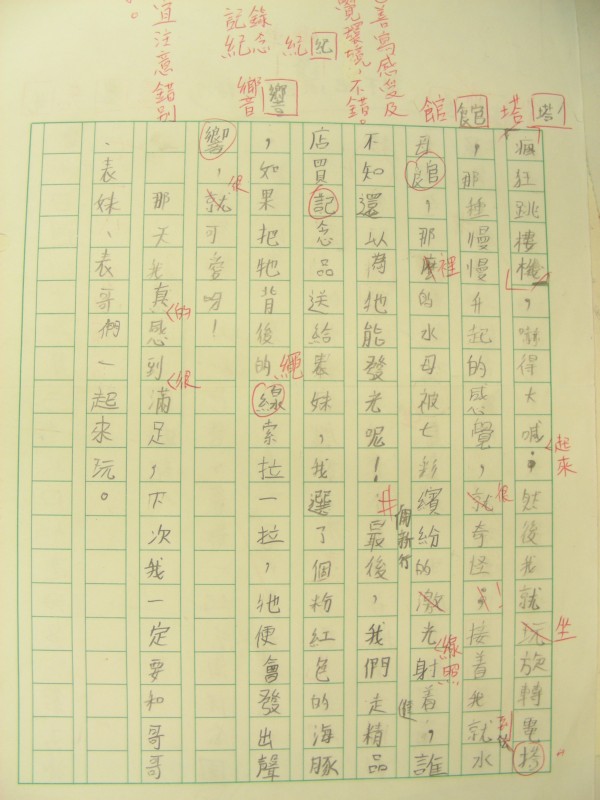 塔 塔
館 館
善寫感受及
環境，不錯。
記錄
紀念 紀 紀
響 響
宜注意錯別
瘋狂跳樓機，嚇得大喊，然後我就玩旋轉電
起來
坐
，那種慢慢升起的感覺，就奇怪，接着我就水
很
母館，那麼的水母被七彩繽紛的激光射着，誰
裡
線照
不知還以為牠能發光呢！最後，我們走精品
個新行
進
店買記念品送給表妹，我選了個粉紅色的海豚
，如果把牠背後的線索拉一拉，牠便會發出聲
繩
響，就可愛呀！
很
那天我真感到滿足，下次我一定要和哥哥
的
很
、表妹、表哥們一起來玩。